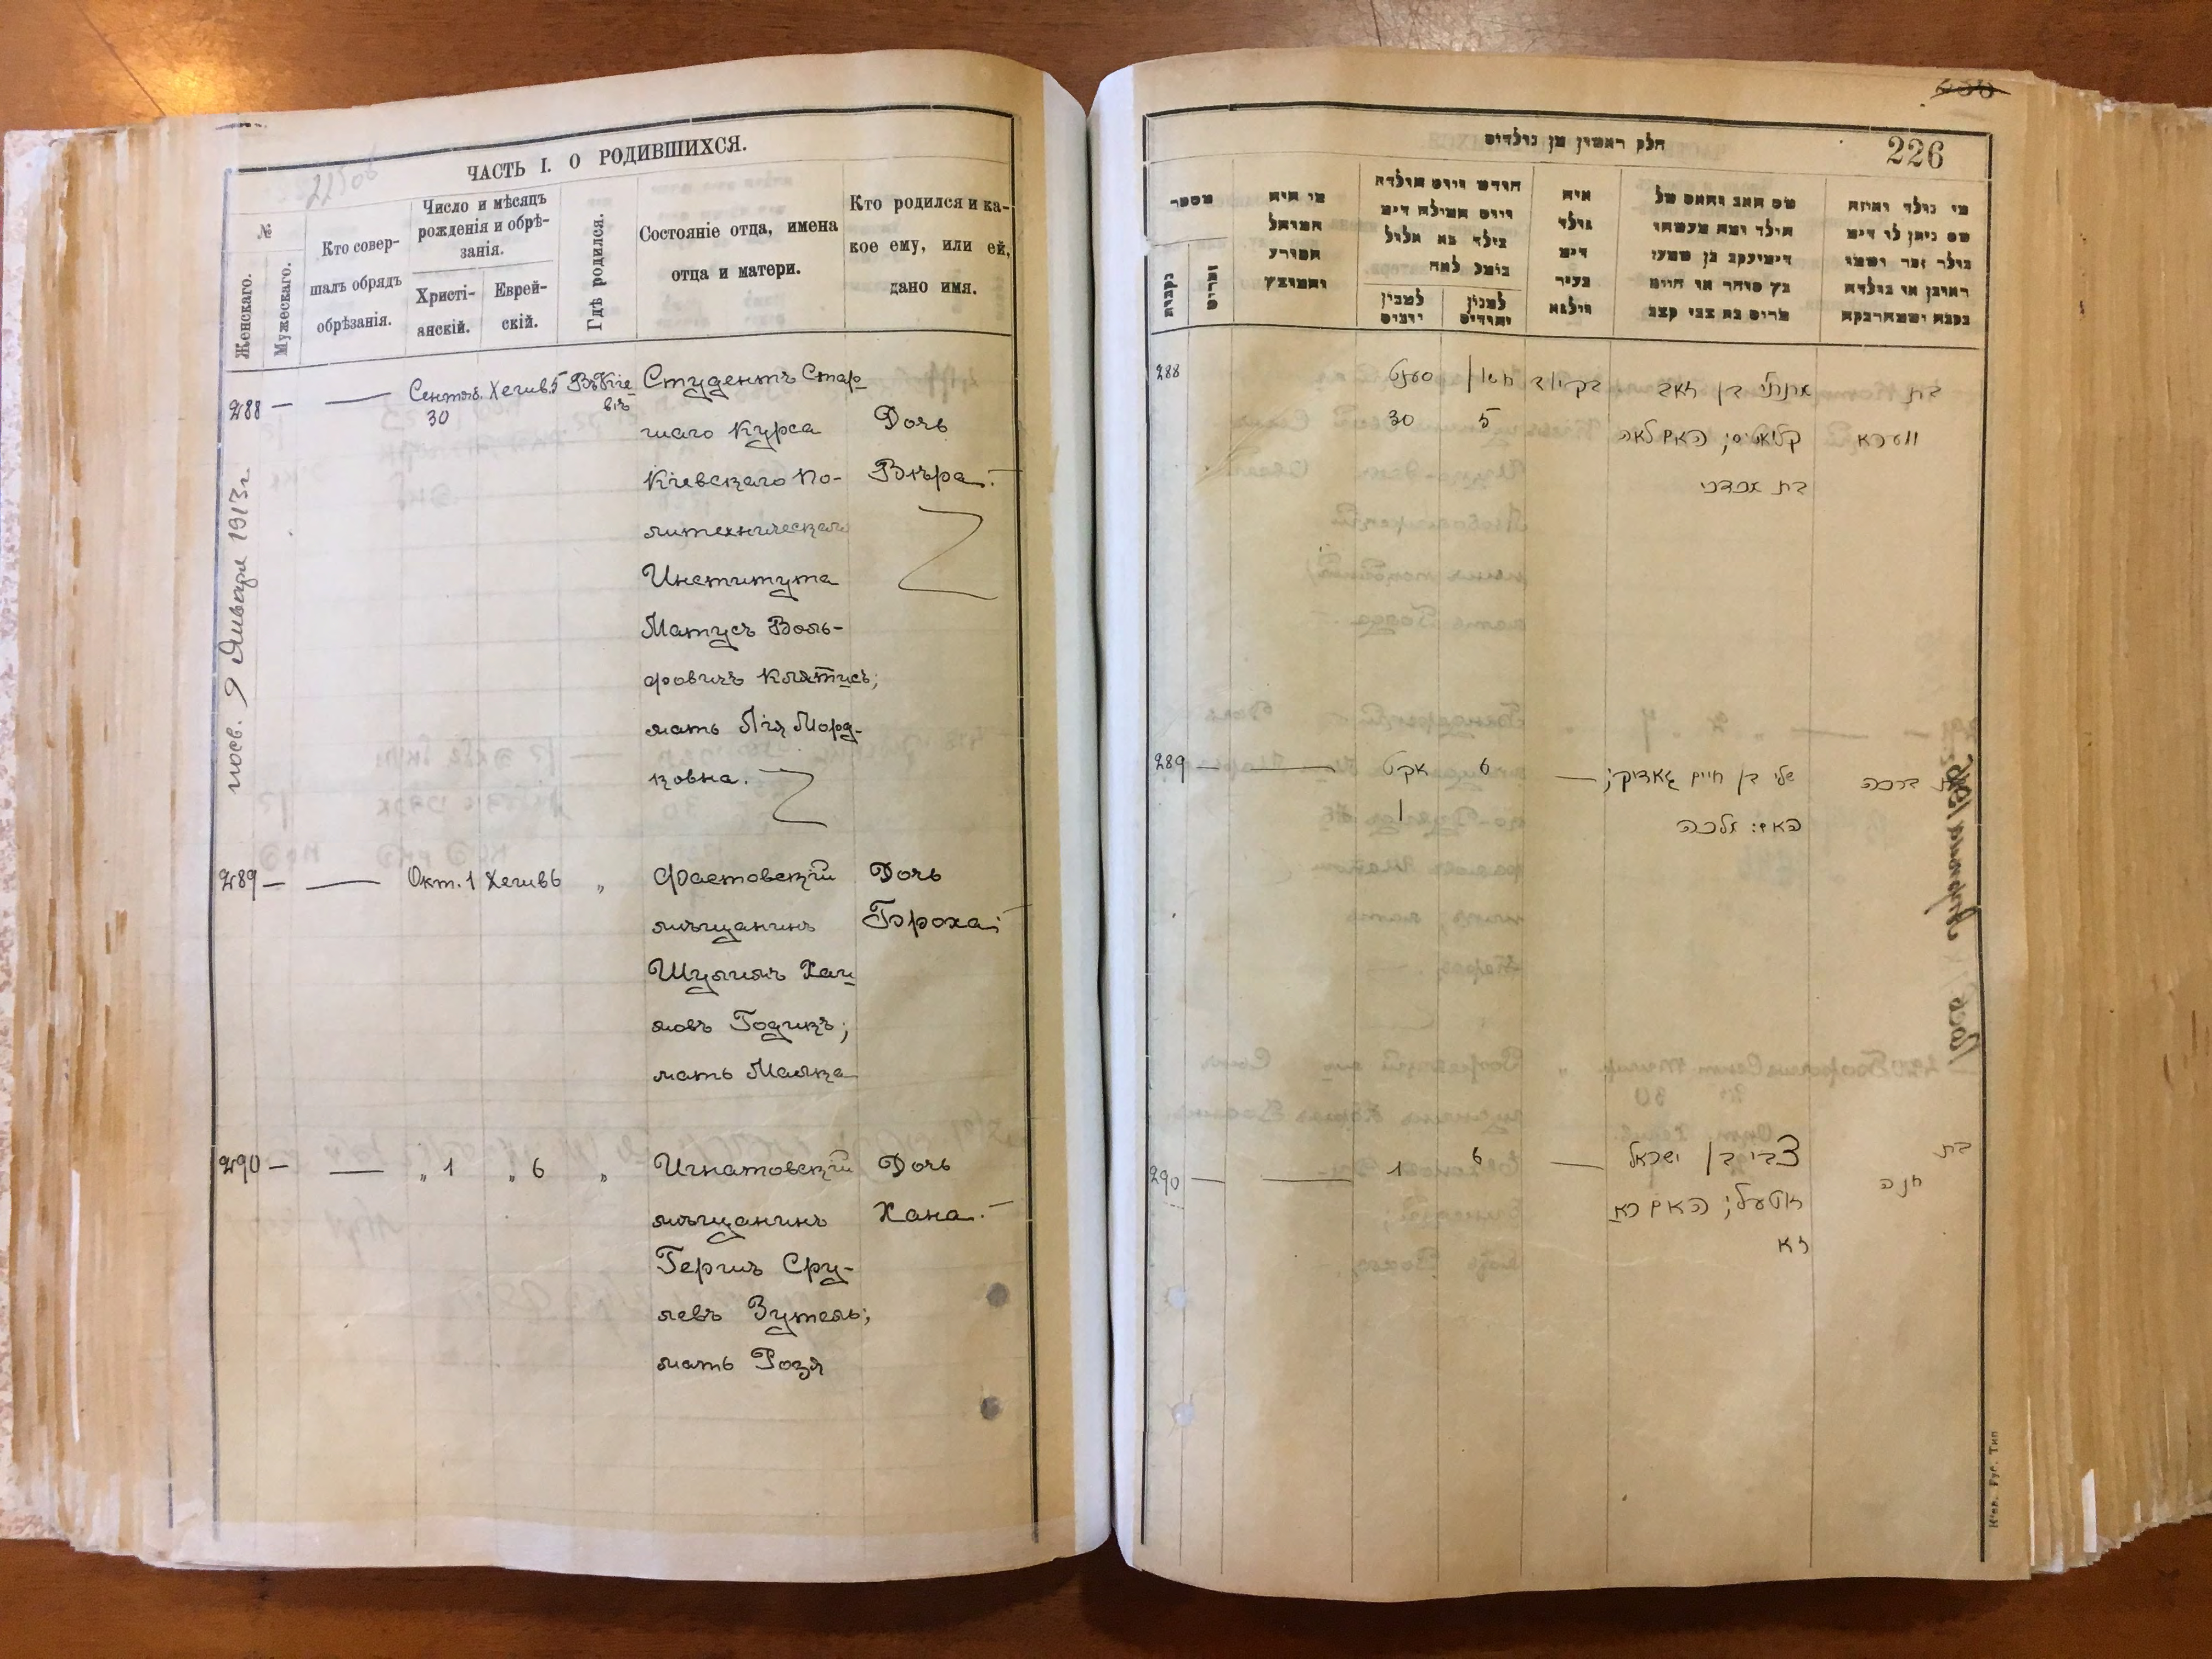 ЧАСТЬ I. О РОДИВШИХСЯ.
№
Женскаго.
Мужескаго.
Кто совер-
шалъ обрядъ
обрѣзанія.
Число и мѣсяцъ
рожденія и обрѣ-
занія.
Христі-
анскій.
Еврей-
скій.
Гдѣ родился.
Состояніе отца, имена
отца и матери.
Кто родился и ка-
кое ему, или ей,
дано имя.
288 — — Сентяб. Хешв. 5 Въ Кіе
30 вѣ
Студентъ Стар
шаго Курса
Кіевскаго По-
литехническаго
Института
Матусъ Воль-
фовичъ Клятисъ;
мать Лія Морд-
ковна.
Дочь
Вѣра.
посв. 9 Января 1913 г.
289 — — Окт. 1 Хешв 6 „
Фастовскій
мѣщанинъ
Шулимъ Хаи
мовъ Годикъ;
мать Малка
Дочь
Броха
290 — — „ 1 „ 6 „
Игнатовскій
мѣщанинъ
Гершъ Сру-
левъ Зутель;
мать Розя
Дочь
Хана.
226
חלק ראשון מן נולדים
מספר
נקבות
זכרים
מי היה
המוהל
והמוצץ
חודש ויום הולדה
ויום המילה
למנין
יהודים
איה
נולד
בעיר
ווילנא
שם האב והאם של
מי נולד ואיזה
שם ניתן לו
288
סענט
30
חשון
5
בקיוב
בן זאב
האם לאה
בת מרדכי
בת
ווערא
289 — —
אקט
1
6
—
שלי בן חיים גאדיק;
האם: מלכה
ברכה
290 — —
1
6
—
צבי בן ישראל
זוטעל; האם רא
זא
בת
חנה
Кіев. Губ. Тип